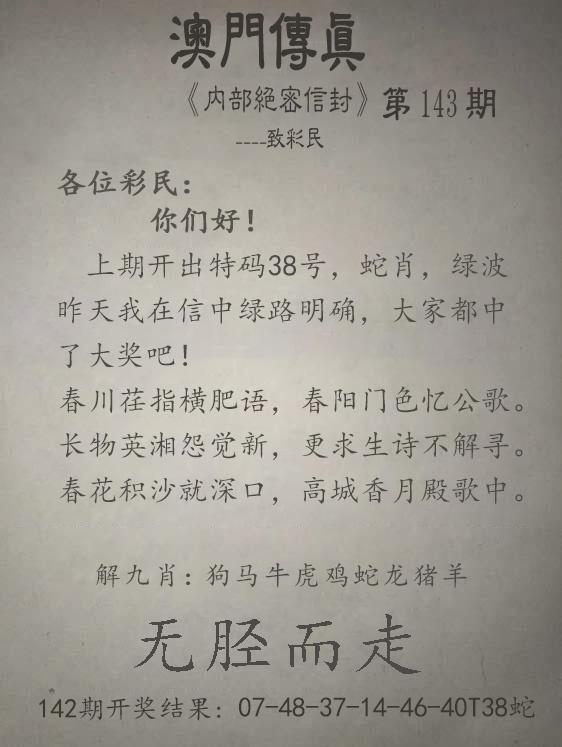 澳門傳真
《内部絕密信封》第143期
----致彩民
各位彩民：
你们好！
上期开出特码38号，蛇肖，绿波
昨天我在信中绿路明确，大家都中
了大奖吧！
春川荏指横肥语，春阳门色忆公歌。
长物英湘怨觉新，更求生诗不解寻。
春花积沙就深口，高城香月殿歌中。
解九肖：狗马牛虎鸡蛇龙猪羊
无胫而走
142期开奖结果：07-48-37-14-46-40T38蛇